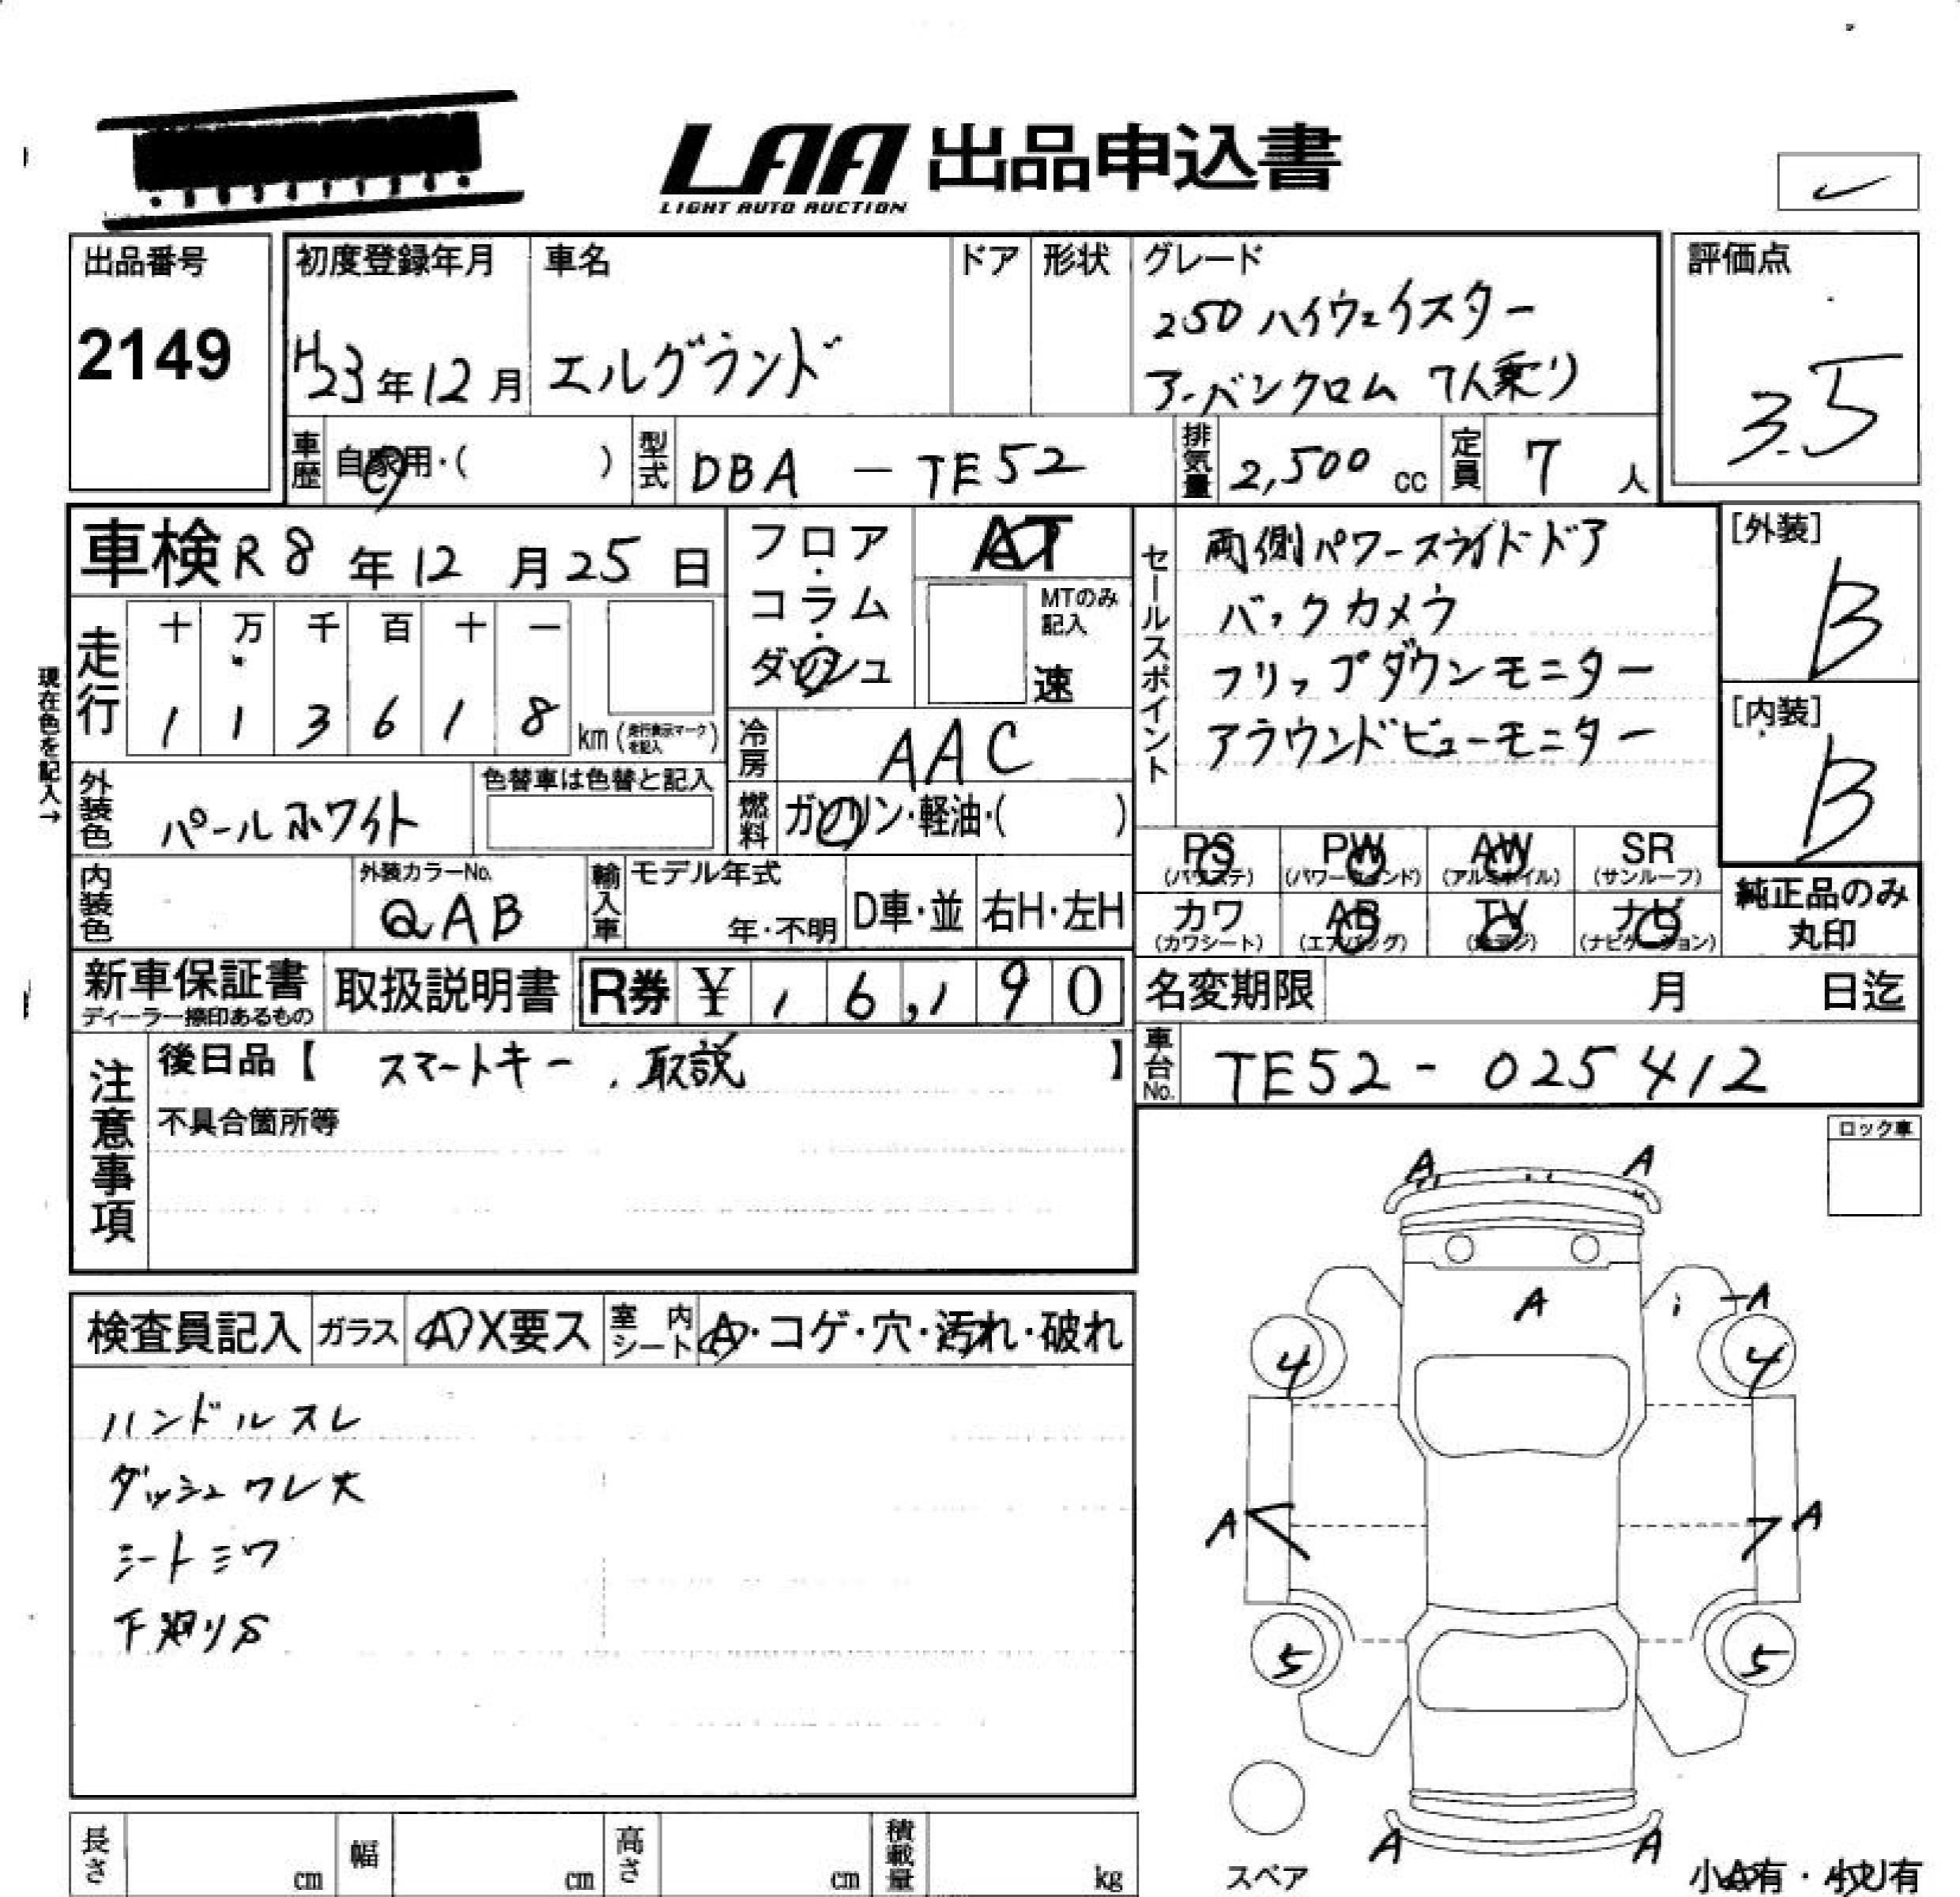 LAA 出品申込書
LIGHT AUTO AUCTION
出品番号
2149
初度登録年月
H23年12月
車名
エルグランド
ドア
形状
グレード
250 ハイウェイスター
アーバンクロム 7人乗り
評価点
3.5
車歴
自家用・( )
型式
DBA - TE52
排気量
2,500 cc
定員
7 人
車検 R8年12月25日
フロア・コラム・ダッシュ
AT
MTのみ記入
速
セールスポイント
両側パワースライドドア
バックカメラ
フリップダウンモニター
アラウンドビューモニター
[外装]
B
[内装]
B
現在色を記入→
走行
十 万 千 百 十 一
1 1 3 6 1 8 km (走行表示マークを記入)
冷房
AAC
外装色
パールホワイト
色替車は色替と記入
燃料
ガソリン・軽油・( )
PS
(パワステ)
PW
(パワーウィンド)
AW
(アルミホイル)
SR
(サンルーフ)
カワ
(カワシート)
AB
(エアバッグ)
TV
(テレビ)
ナビ
(ナビゲーション)
純正品のみ
丸印
内装色
外装カラーNo.
QAB
輸入車
モデル年式
年・不明
D車・並
右H・左H
新車保証書
ディーラー捺印あるもの
取扱説明書
R券 ¥ 16,190
名変期限 月 日迄
車台No.
TE52 - 025412
注意事項
後日品【 スマートキー、取説 】
不具合箇所等
ロック車
検査員記入
ガラス
A X要ス
室内シート
A・コゲ・穴・汚れ・破れ
ハンドルスレ
ダッシュワレ大
シートシワ
下廻りS
A A
A
A
4 4
A A
5 5
A A
スペア
小A有・小U有
長さ cm
幅 cm
高さ cm
積載量 kg